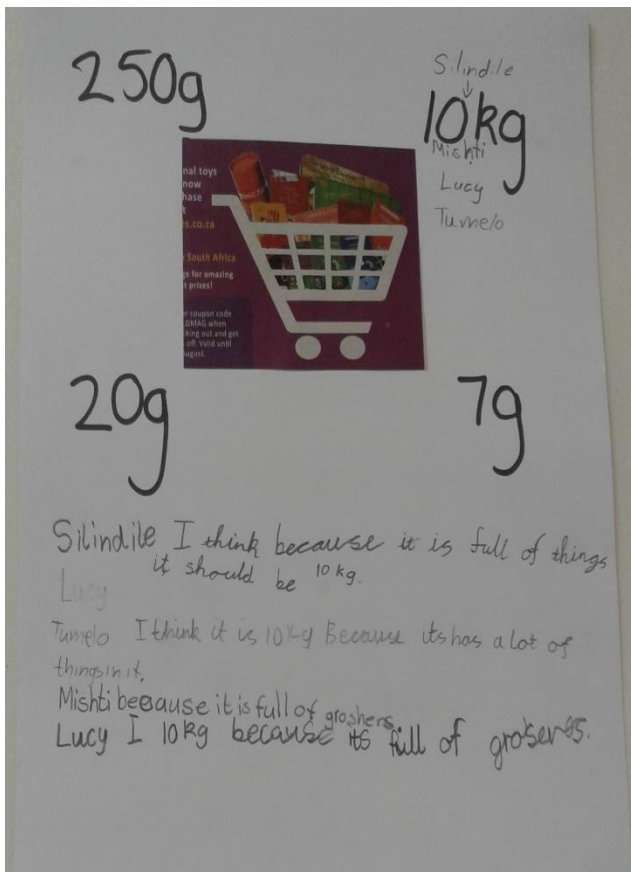 250g
Silindile
10kg
Mishti
Lucy
Tumelo
nal toys
now
hase
t
es.co.za
South Africa
ge for amazing
t prizes!
r coupon code
LOMAG when
cking out and get
off. Valid until
august.
20g
7g
Silindile I think because it is full of things
it should be 10 kg.
Lucy
Tumelo I think it is 10kg Because its has a lot of
things in it,
Mishti beeause it is full of groshers
Lucy I 10kg because its full of groseres.